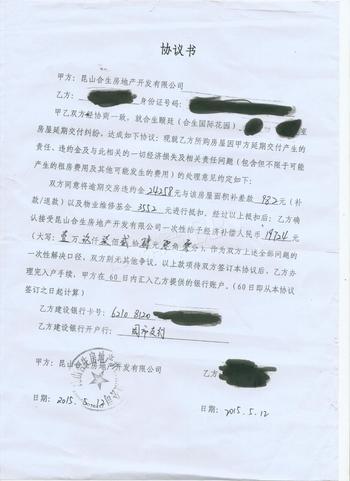 协议书
甲方：昆山合生房地产开发有限公司
乙方： 身份证号码：
甲乙双方经协商一致，就合生颐廷（合生国际花园） 室
房屋延期交付纠纷，达成如下协议：现就乙方所购房屋因甲方延期交付产生的
责任、违约金及与此相关的一切经济损失及相关责任问题（包含但不限于可能
产生的租房费用及其他可能发生的费用）的处理意见约定如下：
双方同意将逾期交房违约金 24258 元与该房屋面积补差款 982 元（补
款/退款）以及物业维修基金 3552 元进行抵扣。经过以上抵扣后：乙方确
认接受昆山合生房地产开发有限公司一次性给予经济补偿人民币 19724 元
（大写：壹万玖仟柒佰贰拾肆元零角零分），作为双方上述全部问题的
一次性解决口径，双方则无其他争议。以上款项待双方签订本协议后，乙方办
理完入户手续，甲方在 60 日内汇入乙方提供的银行账户。（60 日即从本协议
签订之日起计算）
乙方建设银行卡号：6210 8120
乙方建设银行开户行：
甲方：昆山合生房地产开发有限公司 乙方
日期：2015. 日期：2015.5.12